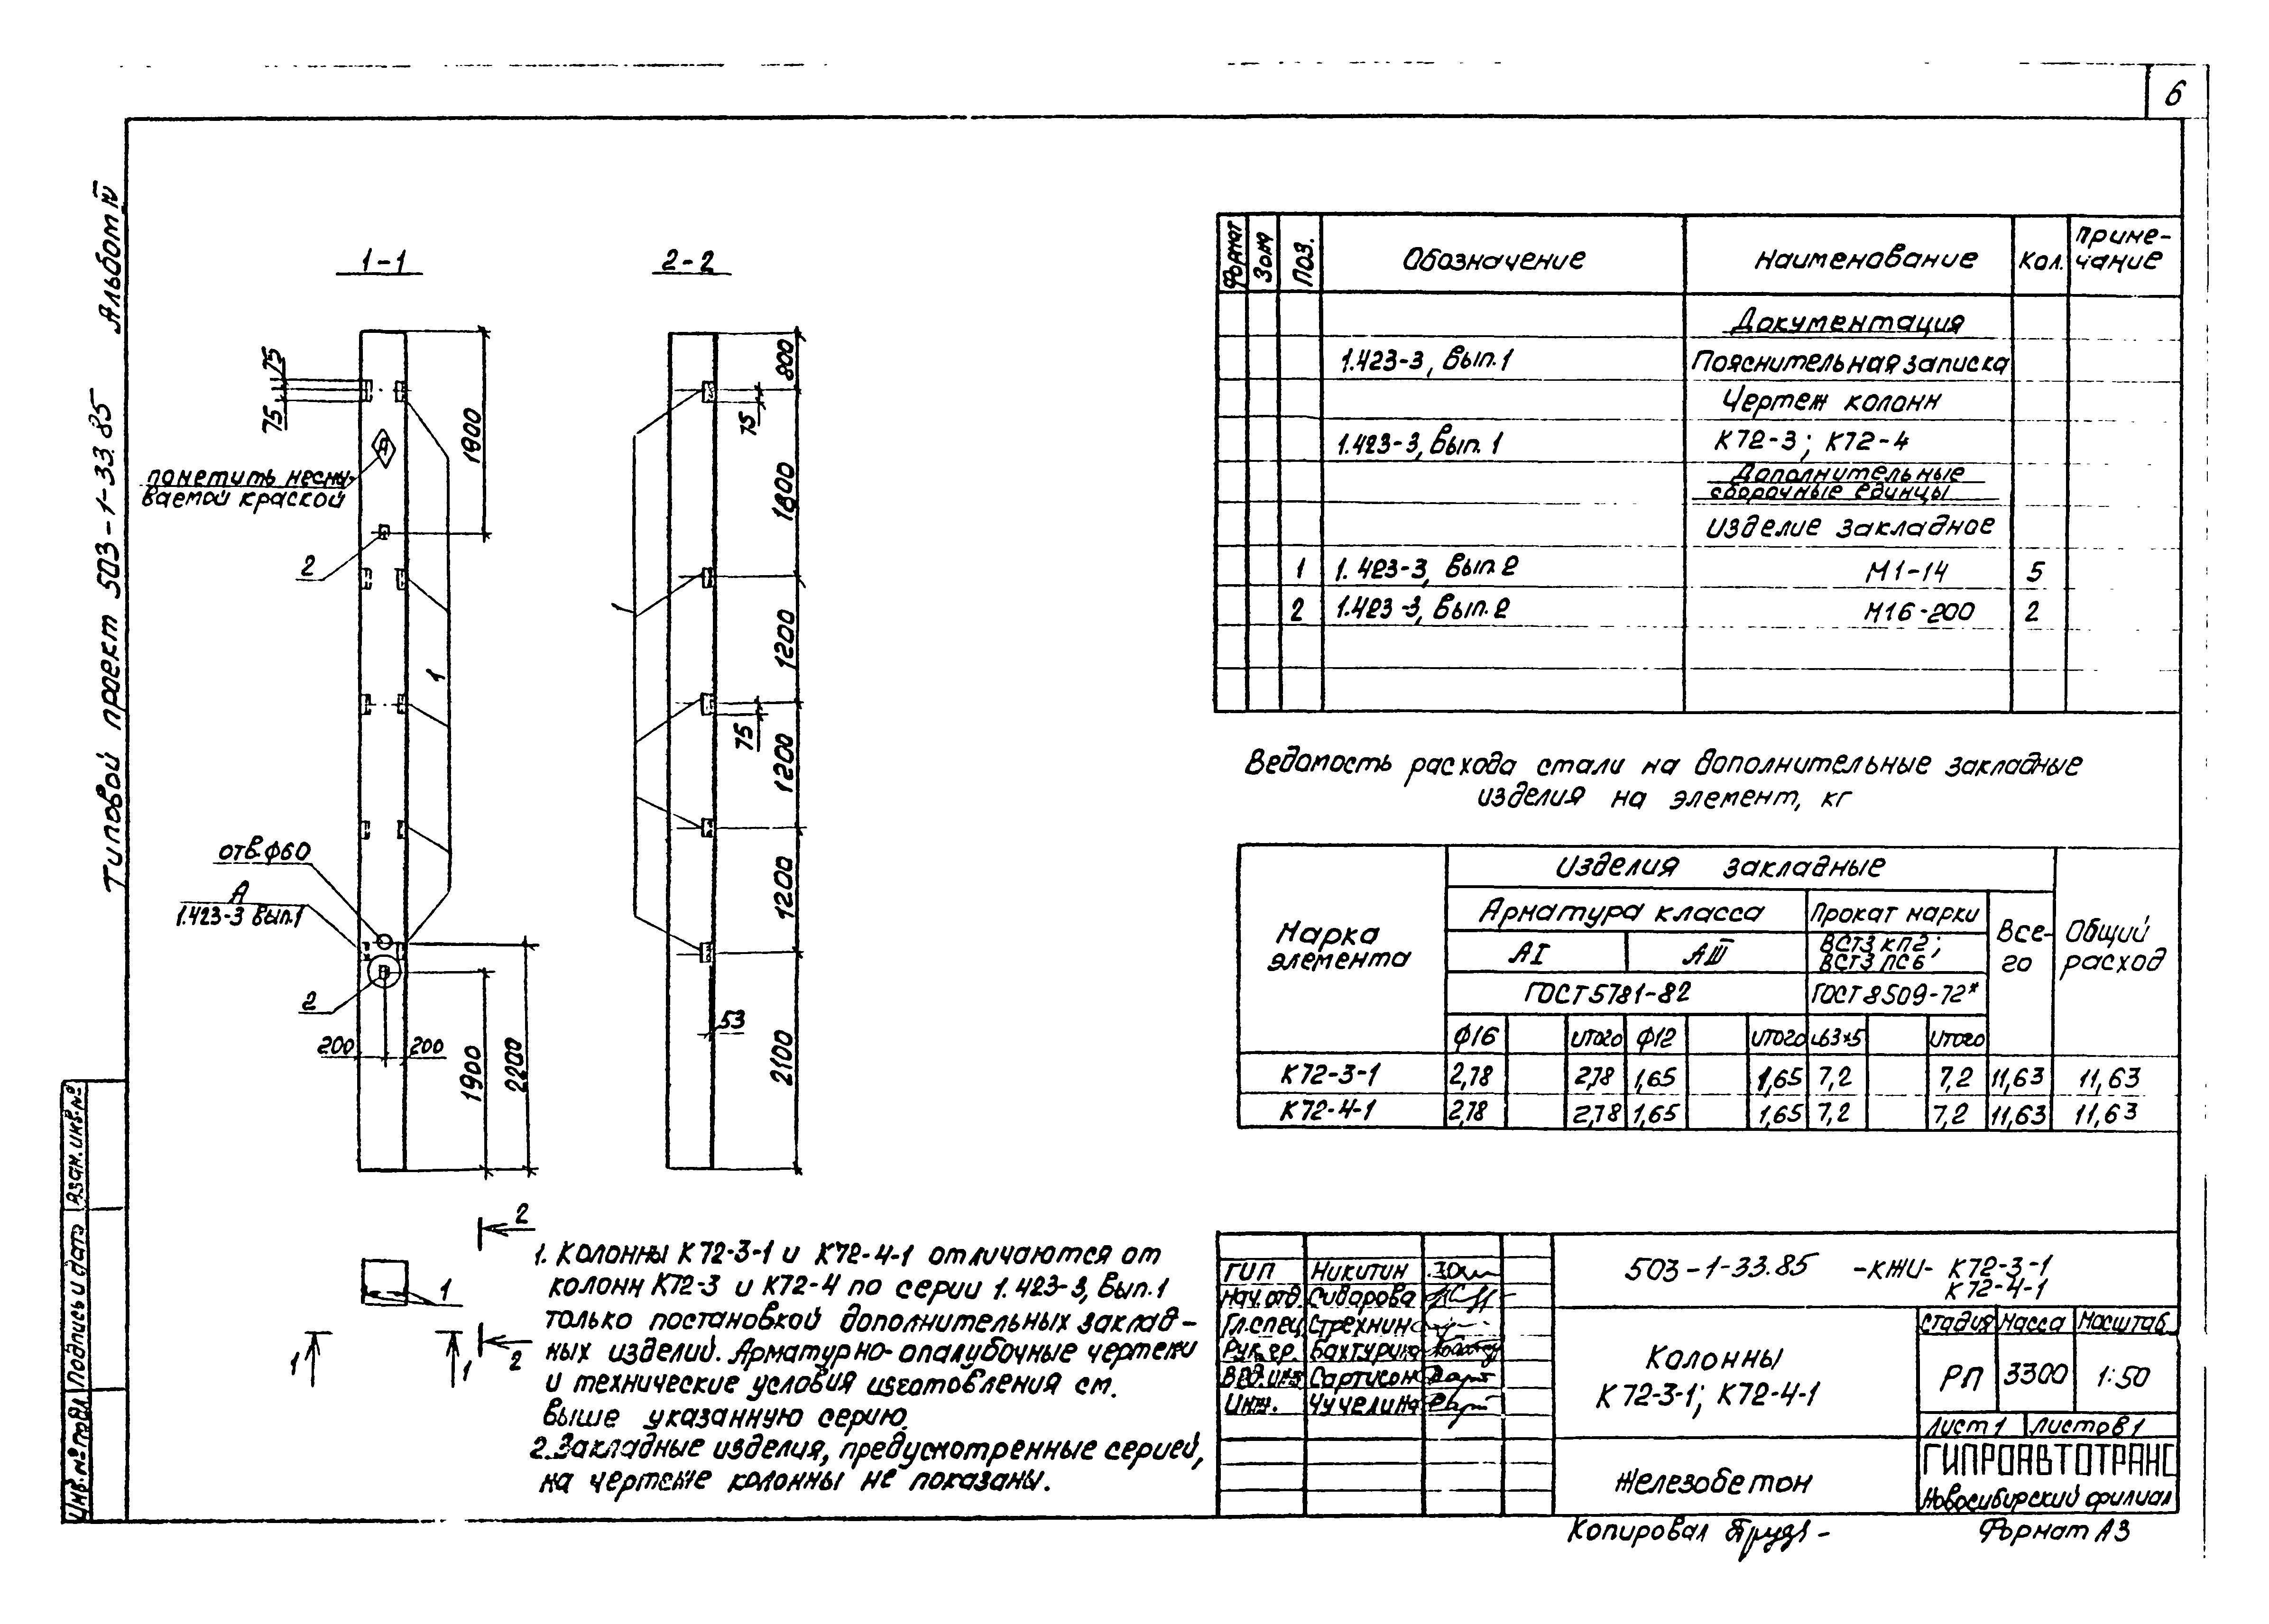 6
Типовой проект 503-1-33.85 Альбом IV
1-1
2-2
75
75
1800
пометить несмы-
ваемой краской
2
1
отв.ф60
А
1.423-3 вып.1
2
200
200
1900
2200
800
75
1800
1
1200
75
1200
1200
53
2100
2
1
1
1
2
Формат
Зона
Поз.
Обозначение
Наименование
Кол.
Приме-
чание
Документация
1.423-3, вып.1 Пояснительная записка
Чертеж колонн
1.423-3, вып.1 К72-3; К72-4
Дополнительные
сборочные единцы
Изделие закладное
1 1.423-3, вып.2 М1-14 5
2 1.423-3, вып.2 М16-200 2
Ведомость расхода стали на дополнительные закладные
изделия на элемент, кг
Марка
элемента
Изделия закладные
Арматура класса
Прокат марки
Все-
го
Общий
расход
АI
АIII
ВСТ3 КП2;
ВСТ3 ПС6
ГОСТ 5781-82
ГОСТ 8509-72*
ф16 итого ф12 итого L63×5 итого
К72-3-1 2,78 2,78 1,65 1,65 7,2 7,2 11,63 11,63
К72-4-1 2,78 2,78 1,65 1,65 7,2 7,2 11,63 11,63
1. Колонны К72-3-1 и К72-4-1 отличаются от
колонн К72-3 и К72-4 по серии 1.423-3, вып.1
только постановкой дополнительных заклад-
ных изделий. Арматурно-опалубочные чертежи
и технические условия изготовления см.
выше указанную серию.
2. Закладные изделия, предусмотренные серией,
на чертеже колонны не показаны.
ГИП Никитин
Нач.отд. Сидарова
Гл.спец Стрехнин
Рук.гр. Бахтурина
Вед.инж Сартисон
Инж. Чучелина
503-1-33.85 -КЖИ- К72-3-1
К72-4-1
Колонны
К72-3-1; К72-4-1
Стадия Масса Масштаб
РП 3300 1:50
Лист 1 Листов 1
Железобетон
ГИПРОАВТОТРАНС
Новосибирский филиал
Копировал
Формат А3
Взам.инв.№
Подпись и дата
Инв.№ подл